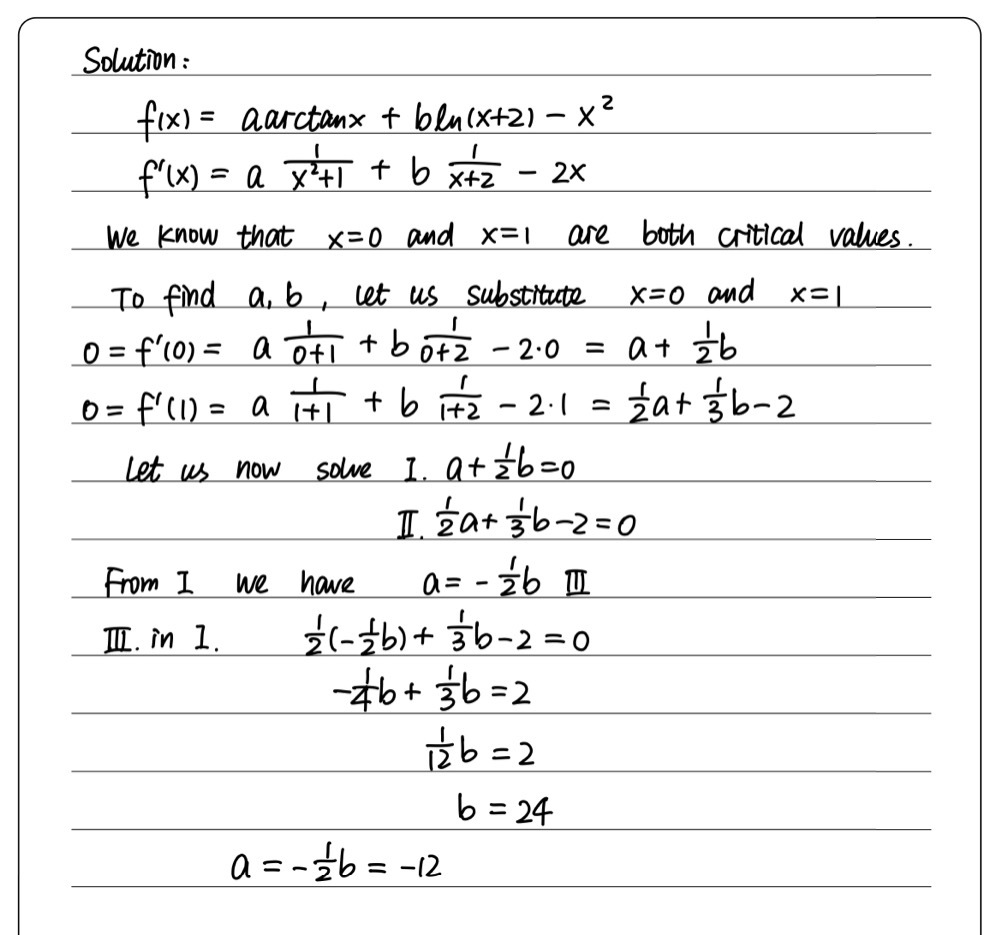 Solution:
f(x) = a arctanx + bln(x+2) - x²
f'(x) = a 1/(x²+1) + b 1/(x+2) - 2x
We know that x=0 and x=1 are both critical values.
To find a, b, let us substitute x=0 and x=1
0 = f'(0) = a 1/(0+1) + b 1/(0+2) - 2·0 = a + 1/2 b
0 = f'(1) = a 1/(1+1) + b 1/(1+2) - 2·1 = 1/2 a + 1/3 b - 2
Let us now solve I. a + 1/2 b = 0
II. 1/2 a + 1/3 b - 2 = 0
From I we have a = - 1/2 b III
III. in I. 1/2 (- 1/2 b) + 1/3 b - 2 = 0
- 1/4 b + 1/3 b = 2
1/12 b = 2
b = 24
a = - 1/2 b = -12